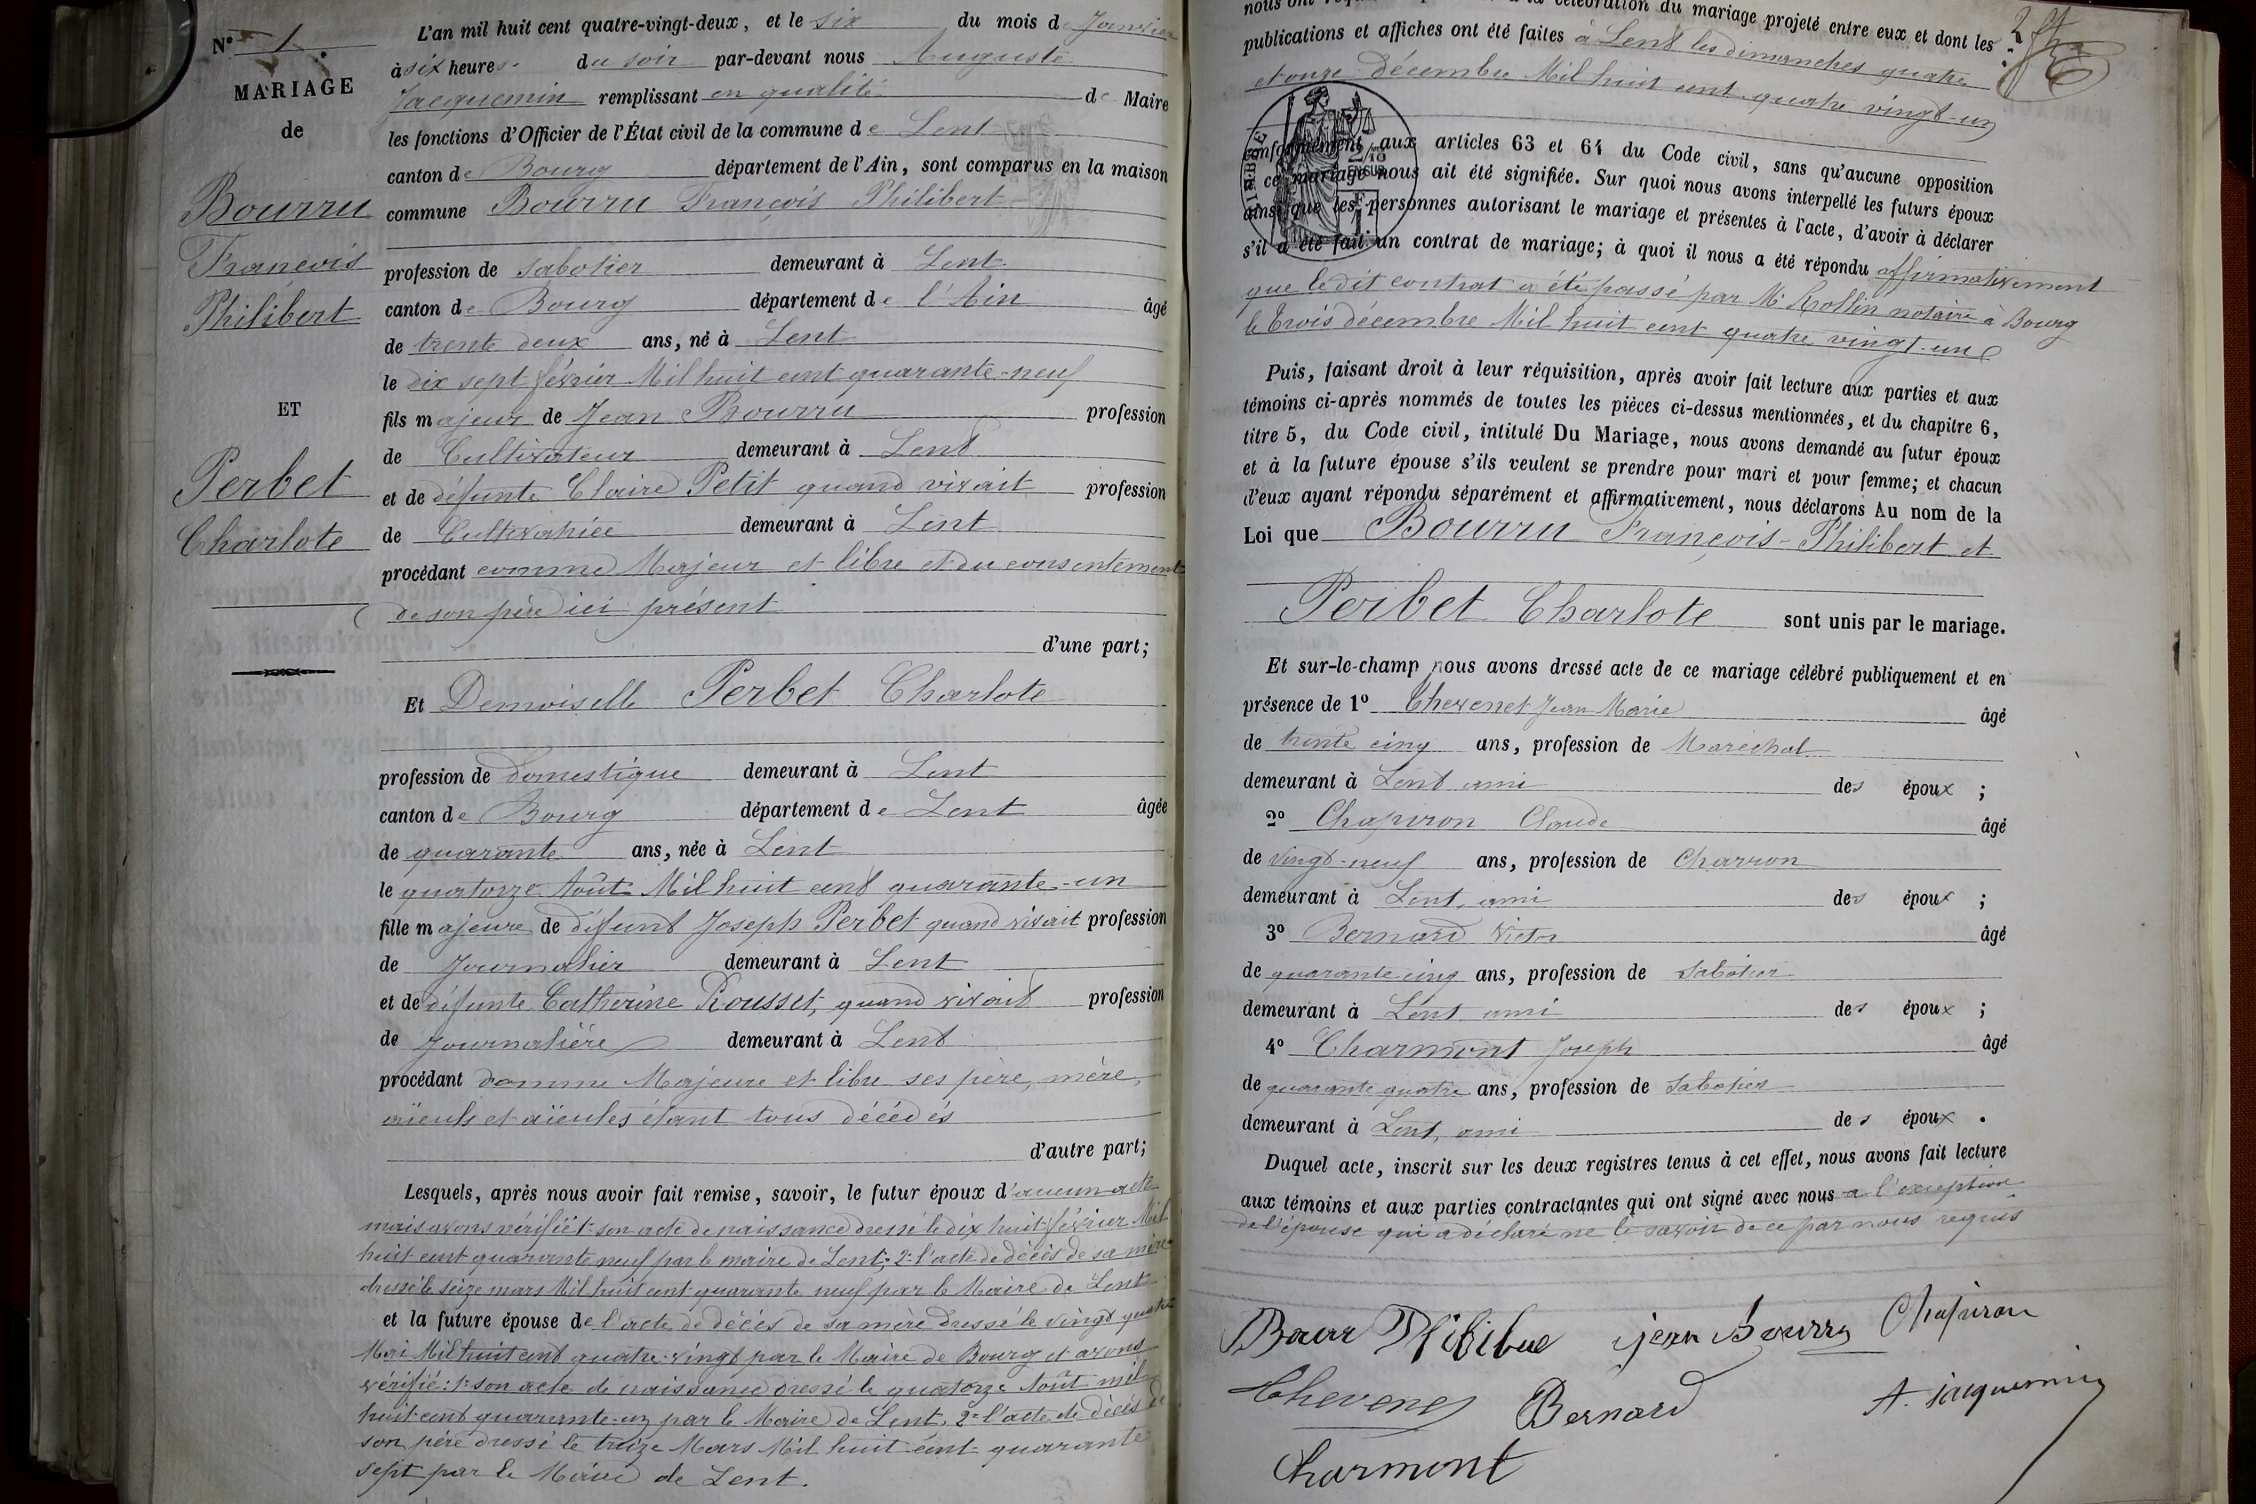 N.º 1
MARIAGE
de
Bourru
François
Philibert
ET
Perbet
Charlote
L'an mil huit cent quatre-vingt-deux, et le six du mois de Janvier
à six heures du soir par-devant nous Auguste
Jacquemin remplissant en qualité de Maire
les fonctions d'Officier de l'État civil de la commune de Lent
canton de Bourg département de l'Ain, sont comparus en la maison
commune Bourru François Philibert
profession de sabotier demeurant à Lent
canton de Bourg département de l'Ain âgé
de trente deux ans, né à Lent
le dix sept février Mil huit cent quarante-neuf
fils majeur de Jean Bourru profession
de Cultivateur demeurant à Lent
et de défunte Claire Petit quand vivait profession
de Cultivatrice demeurant à Lent
procédant comme Majeur et libre et du consentement
de son père ici présent
d'une part;
Et Demoiselle Perbet Charlote
profession de domestique demeurant à Lent
canton de Bourg département de Lent âgée
de quarante ans, née à Lent
le quatorze Août Mil huit cent quarante-un
fille majeure de défunt Joseph Perbet quand vivait profession
de Journalier demeurant à Lent
et de défunte Catherine Rousset, quand vivait profession
de Journalière demeurant à Lent
procédant comme Majeure et libre ses père, mère,
aïeuls et aïeules étant tous décédés
d'autre part;
Lesquels, après nous avoir fait remise, savoir, le futur époux d'aucun acte
mais avons vérifié 1º son acte de naissance dressé le dix huit février Mil
huit cent quarante neuf par le maire de Lent; 2º l'acte de décès de sa mère
dressé le seize mars Mil huit cent quarante neuf par le Maire de Lent
et la future épouse de l'acte de décès de sa mère dressé le vingt quatre
Mai Mil huit cent quatre-vingt par le Maire de Bourg et avons
vérifié: 1º son acte de naissance dressé le quatorze Août mil
huit cent quarante-un par le Maire de Lent, 2º l'acte de décès de
son père dressé le treize Mars Mil huit cent quarante
sept par le Maire de Lent.
célébration du mariage projeté entre eux et dont les
publications et affiches ont été faites à Lent les dimanches quatre
et onze décembre Mil huit cent quatre vingt-un
conformément aux articles 63 et 64 du Code civil, sans qu'aucune opposition
à ce mariage nous ait été signifiée. Sur quoi nous avons interpellé les futurs époux
ainsi que les personnes autorisant le mariage et présentes à l'acte, d'avoir à déclarer
s'il a été fait un contrat de mariage; à quoi il nous a été répondu affirmativement
que le dit contrat a été passé par Mº Rollin notaire a Bourg
le trois décembre Mil huit cent quatre vingt-un
Puis, faisant droit à leur réquisition, après avoir fait lecture aux parties et aux
témoins ci-après nommés de toutes les pièces ci-dessus mentionnées, et du chapitre 6,
titre 5, du Code civil, intitulé Du Mariage, nous avons demandé au futur époux
et à la future épouse s'ils veulent se prendre pour mari et pour femme; et chacun
d'eux ayant répondu séparément et affirmativement, nous déclarons Au nom de la
Loi que Bourru François-Philibert et
Perbet Charlote sont unis par le mariage.
Et sur-le-champ nous avons dressé acte de ce mariage célébré publiquement et en
présence de 1º Chevenet Jean Marie âgé
de trente cinq ans, profession de Maréchal
demeurant à Lent ami des époux ;
2º Chapiron Claude âgé
de vingt-neuf ans, profession de Charron
demeurant à Lent, ami des époux ;
3º Bernard Victor âgé
de quarante-cinq ans, profession de Sabotier
demeurant à Lent ami des époux ;
4º Charmont Joseph âgé
de quarante quatre ans, profession de Sabotier
demeurant à Lent, ami des époux .
Duquel acte, inscrit sur les deux registres tenus à cet effet, nous avons fait lecture
aux témoins et aux parties contractantes qui ont signé avec nous a l'exception
de l'épouse qui a déclaré ne le savoir de ce par nous requis
Jean Bourru Chapiron
Bernard A. Jacquemin
Charmont